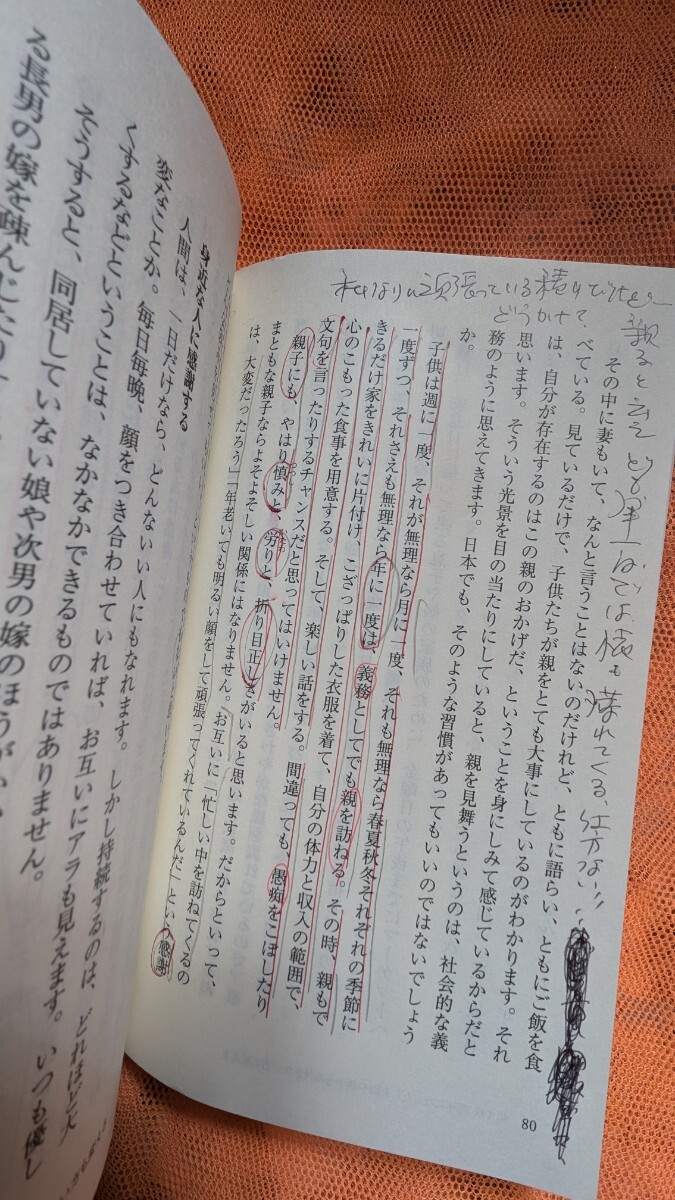 私なりに頑張っている積りでけど
どうかさ?
親ると云えども単一日では 様も 壊れてくる、仕方ない!!
その中に妻もいて、なんと言うことはないのだけれど、ともに語らい、ともにご飯を食
べている。見ているだけで、子供たちが親をとても大事にしているのがわかります。それ
は、自分が存在するのはこの親のおかげだ、ということを身にしみて感じているからだと
思います。そういう光景を目の当たりにしていると、親を見舞うというのは、社会的な義
務のように思えてきます。日本でも、そのような習慣があってもいいのではないでしょう
か。
子供は週に一度、それが無理なら月に一度、それも無理なら春夏秋冬それぞれの季節に
一度ずつ、それさえも無理なら年に一度は、義務としてでも親を訪ねる。その時、親もで
きるだけ家をきれいに片付け、こざっぱりした衣服を着て、自分の体力と収入の範囲で、
心のこもった食事を用意する。そして、楽しい話をする。間違っても、愚痴をこぼしたり
文句を言ったりするチャンスだと思ってはいけません。
親子にも、やはり慎みと、労りと、折り目正しさがいると思います。だからといって、
まともな親子ならよそよそしい関係にはなりません。お互いに「忙しい中を訪ねてくるの
は、大変だったろう」「年老いても明るい顔をして頑張ってくれているんだ」という感謝
80
身近な人に感謝する
人間は、一日だけなら、どんないい人にもなれます。しかし持続するのは、どれほど大
変なことか。毎日毎晩、顔をつき合わせていれば、お互いにアラも見えます。いつも優し
くするなどということは、なかなかできるものではありません。
そうすると、同居していない娘や次男の嫁のほうが
る長男の嫁を疎んじたり